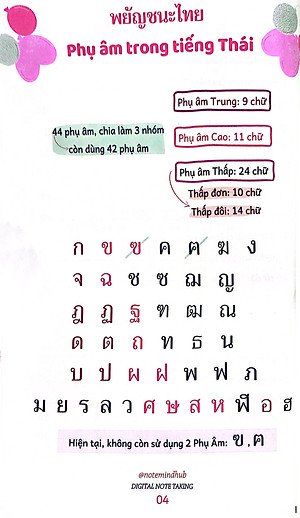 พยัญชนะไทย
Phụ âm trong tiếng Thái
Phụ âm Trung: 9 chữ
44 phụ âm, chia làm 3 nhóm
còn dùng 42 phụ âm
Phụ âm Cao: 11 chữ
Phụ âm Thấp: 24 chữ
Thấp đơn: 10 chữ
Thấp đôi: 14 chữ
ก ข ฃ ค ฅ ฆ ง
จ ฉ ช ซ ฌ ญ
ฎ ฏ ฐ ฑ ฒ ณ
ด ต ถ ท ธ น
บ ป ผ ฝ พ ฟ ภ
ม ย ร ล ว ศ ษ ส ห ฬ อ ฮ
Hiện tại, không còn sử dụng 2 Phụ Âm: ฃ,ฅ
@notemindhub
DIGITAL NOTE TAKING
04